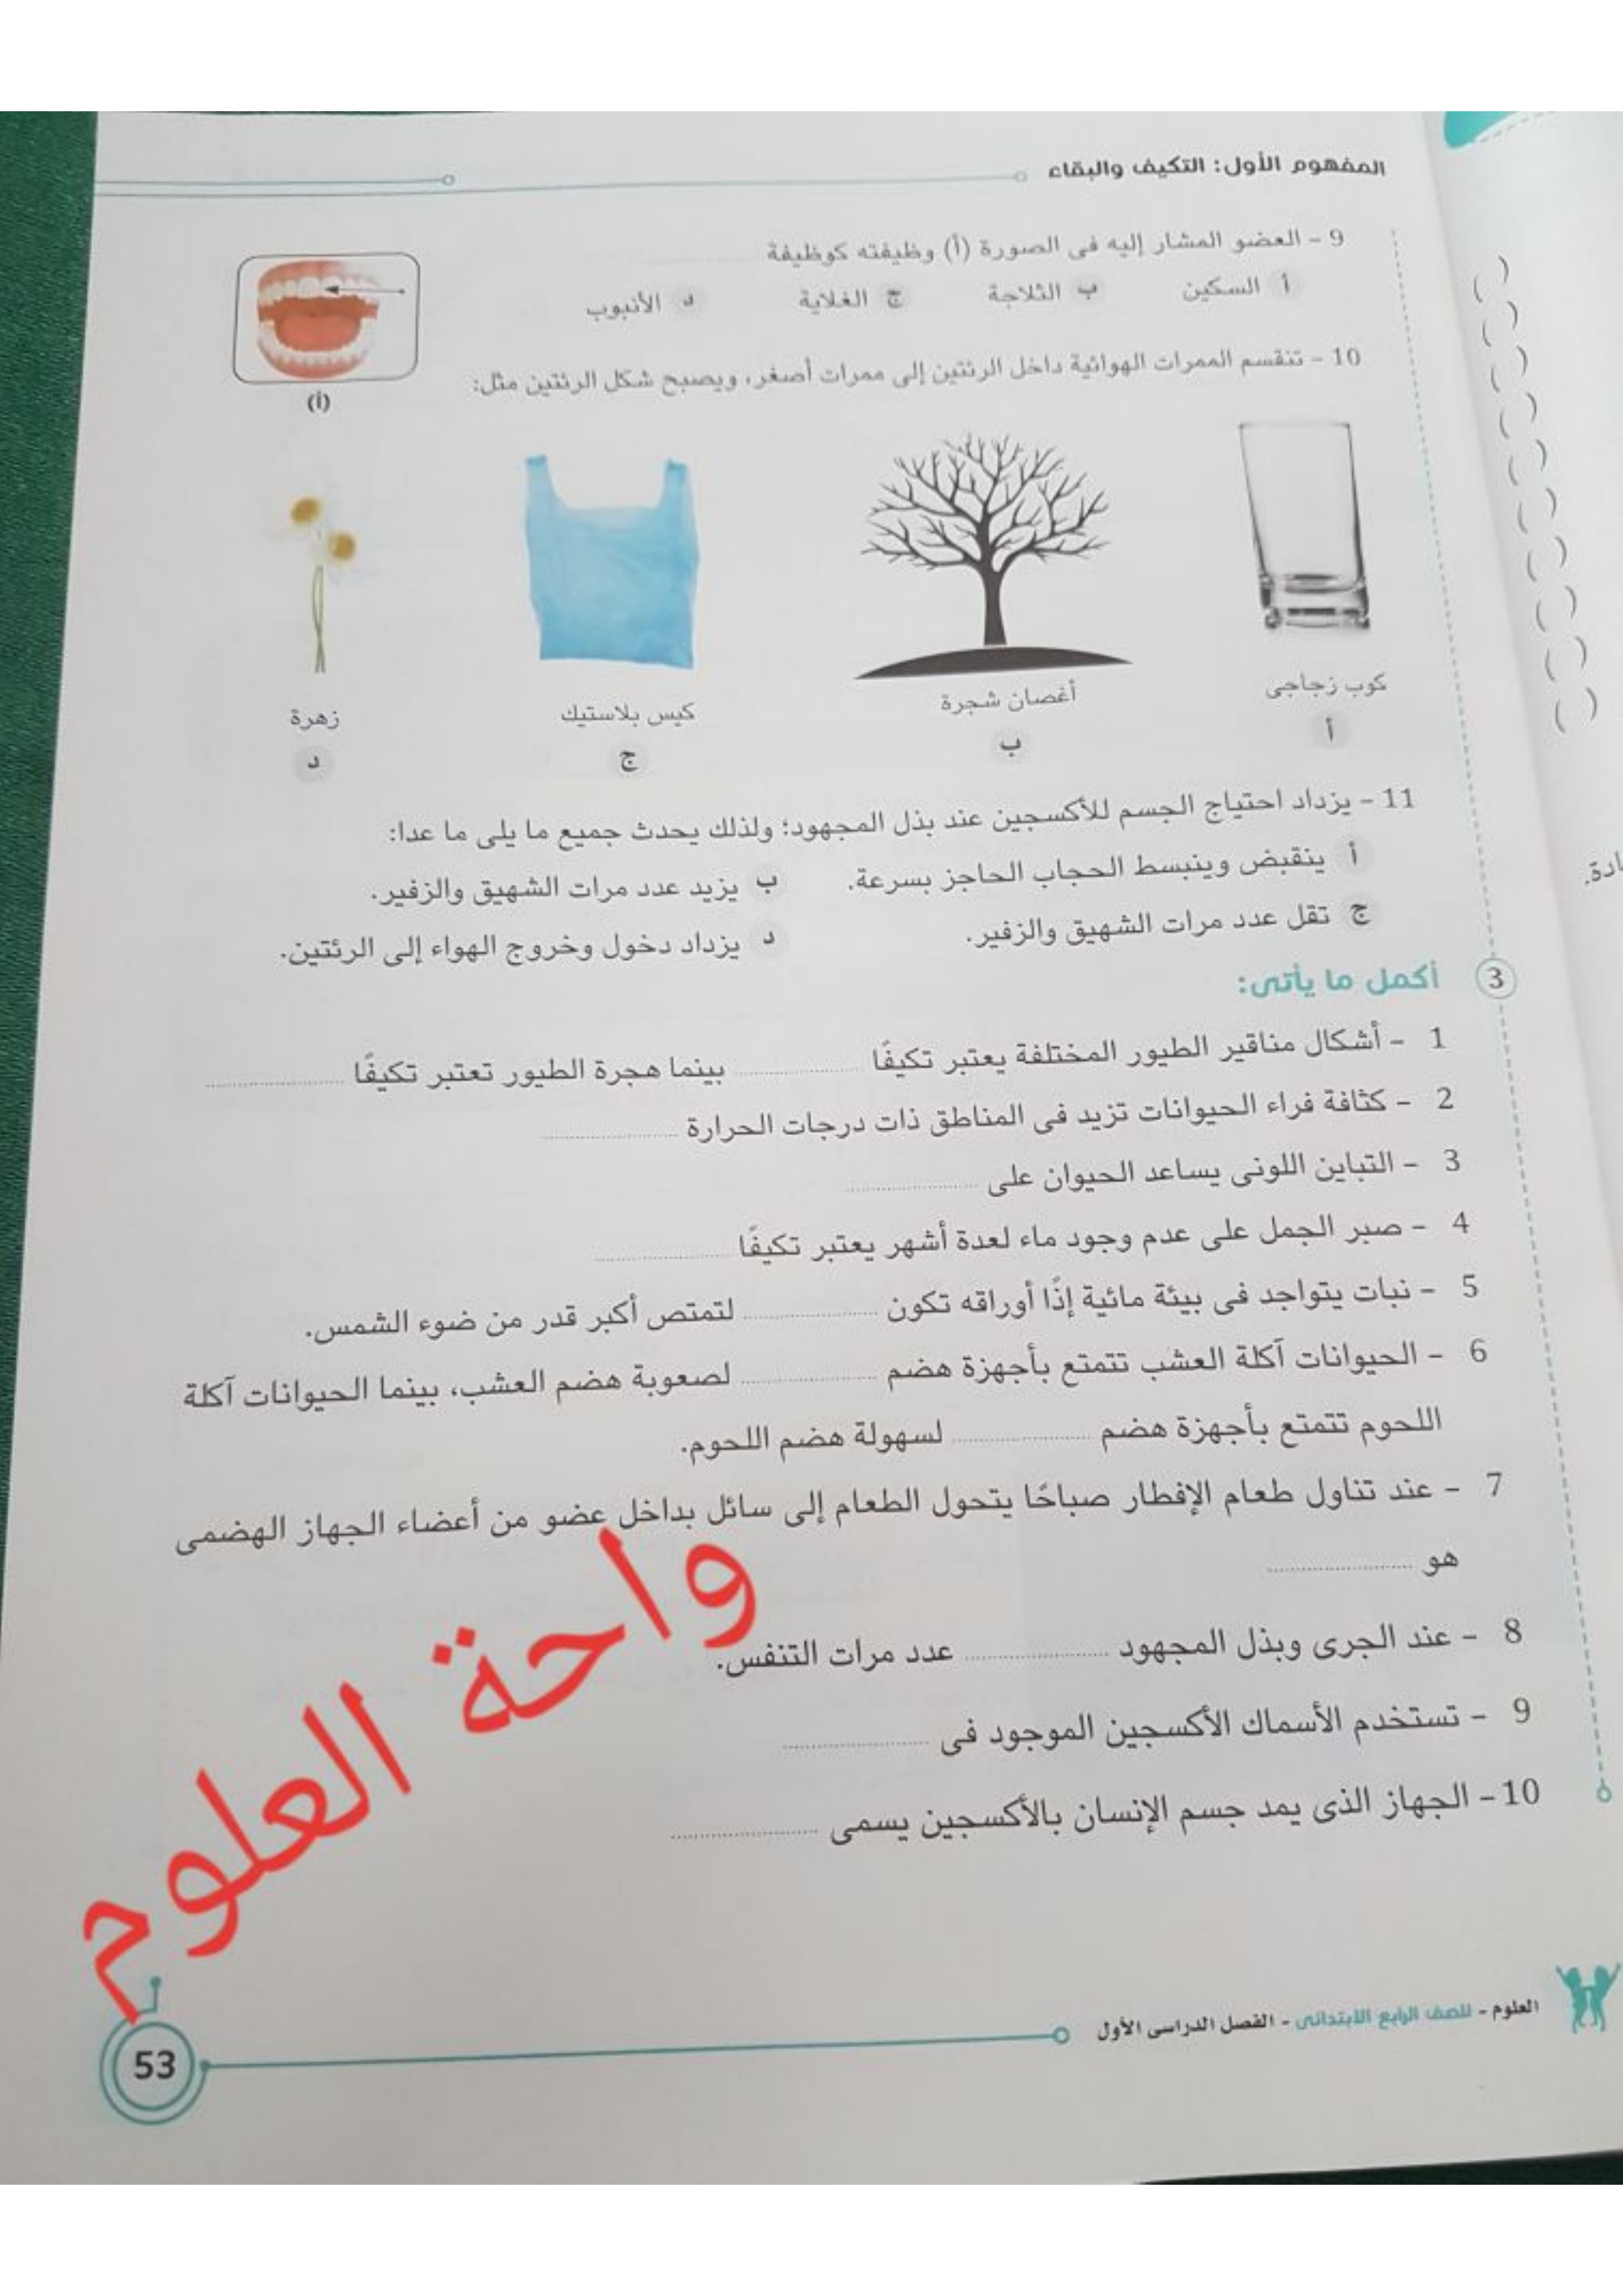 المفهوم الأول: التكيف والبقاء
9 - العضو المشار إليه فى الصورة (أ) وظيفته كوظيفة
أ السكين ب الثلاجة ج الغلاية د الأنبوب
(أ)
10 - تنقسم الممرات الهوائية داخل الرئتين إلى ممرات أصغر، ويصبح شكل الرئتين مثل:
كوب زجاجى أغصان شجرة كيس بلاستيك زهرة
أ ب ج د
11 - يزداد احتياج الجسم للأكسجين عند بذل المجهود؛ ولذلك يحدث جميع ما يلى ما عدا:
أ ينقبض وينبسط الحجاب الحاجز بسرعة. ب يزيد عدد مرات الشهيق والزفير.
ج تقل عدد مرات الشهيق والزفير. د يزداد دخول وخروج الهواء إلى الرئتين.
3 أكمل ما يأتى:
1 - أشكال مناقير الطيور المختلفة يعتبر تكيفًا .................... بينما هجرة الطيور تعتبر تكيفًا ....................
2 - كثافة فراء الحيوانات تزيد فى المناطق ذات درجات الحرارة ....................
3 - التباين اللونى يساعد الحيوان على ....................
4 - صبر الجمل على عدم وجود ماء لعدة أشهر يعتبر تكيفًا ....................
5 - نبات يتواجد فى بيئة مائية إذًا أوراقه تكون .................... لتمتص أكبر قدر من ضوء الشمس.
6 - الحيوانات آكلة العشب تتمتع بأجهزة هضم .................... لصعوبة هضم العشب، بينما الحيوانات آكلة
اللحوم تتمتع بأجهزة هضم .................... لسهولة هضم اللحوم.
7 - عند تناول طعام الإفطار صباحًا يتحول الطعام إلى سائل بداخل عضو من أعضاء الجهاز الهضمى
هو ....................
8 - عند الجرى وبذل المجهود .................... عدد مرات التنفس.
9 - تستخدم الأسماك الأكسجين الموجود فى ....................
10 - الجهاز الذى يمد جسم الإنسان بالأكسجين يسمى ....................
واحة العلوم
العلوم - للصف الرابع الابتدائى - الفصل الدراسى الأول
53